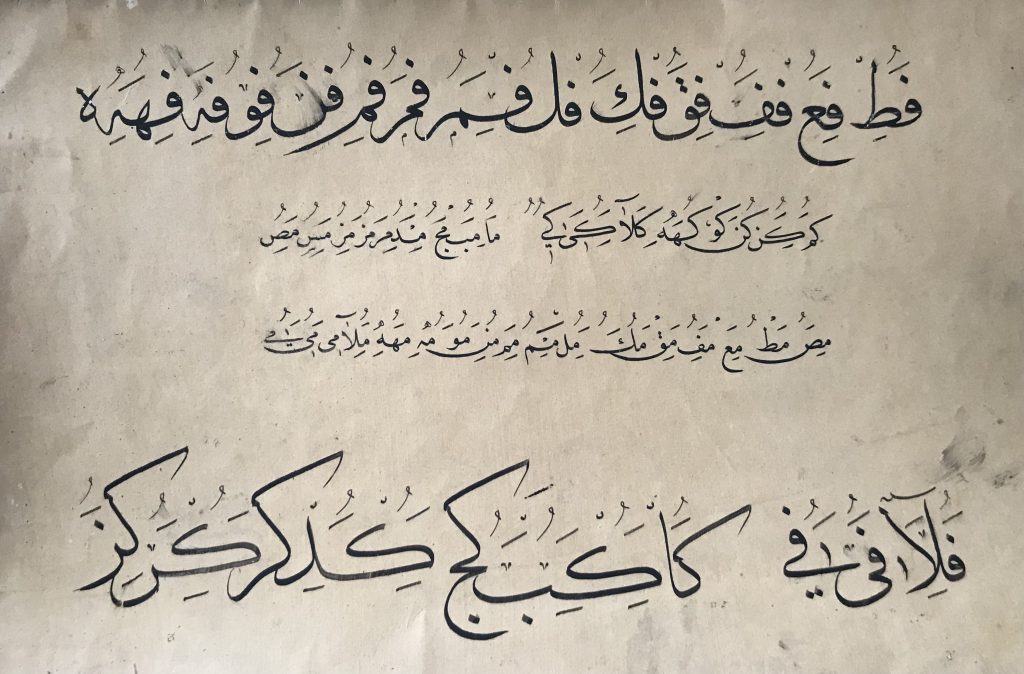 فط فع فف فق فك فل فم فم فم فن فو فه فهه
كم كن كن كو كهه كلا كى كي ما مب مج مد مر مز مس مص
مص مط مع مف مق مك مل مم مم من مو مه مهه ملا مى مي
فلا فى في كا كب كج كد كر كر كز